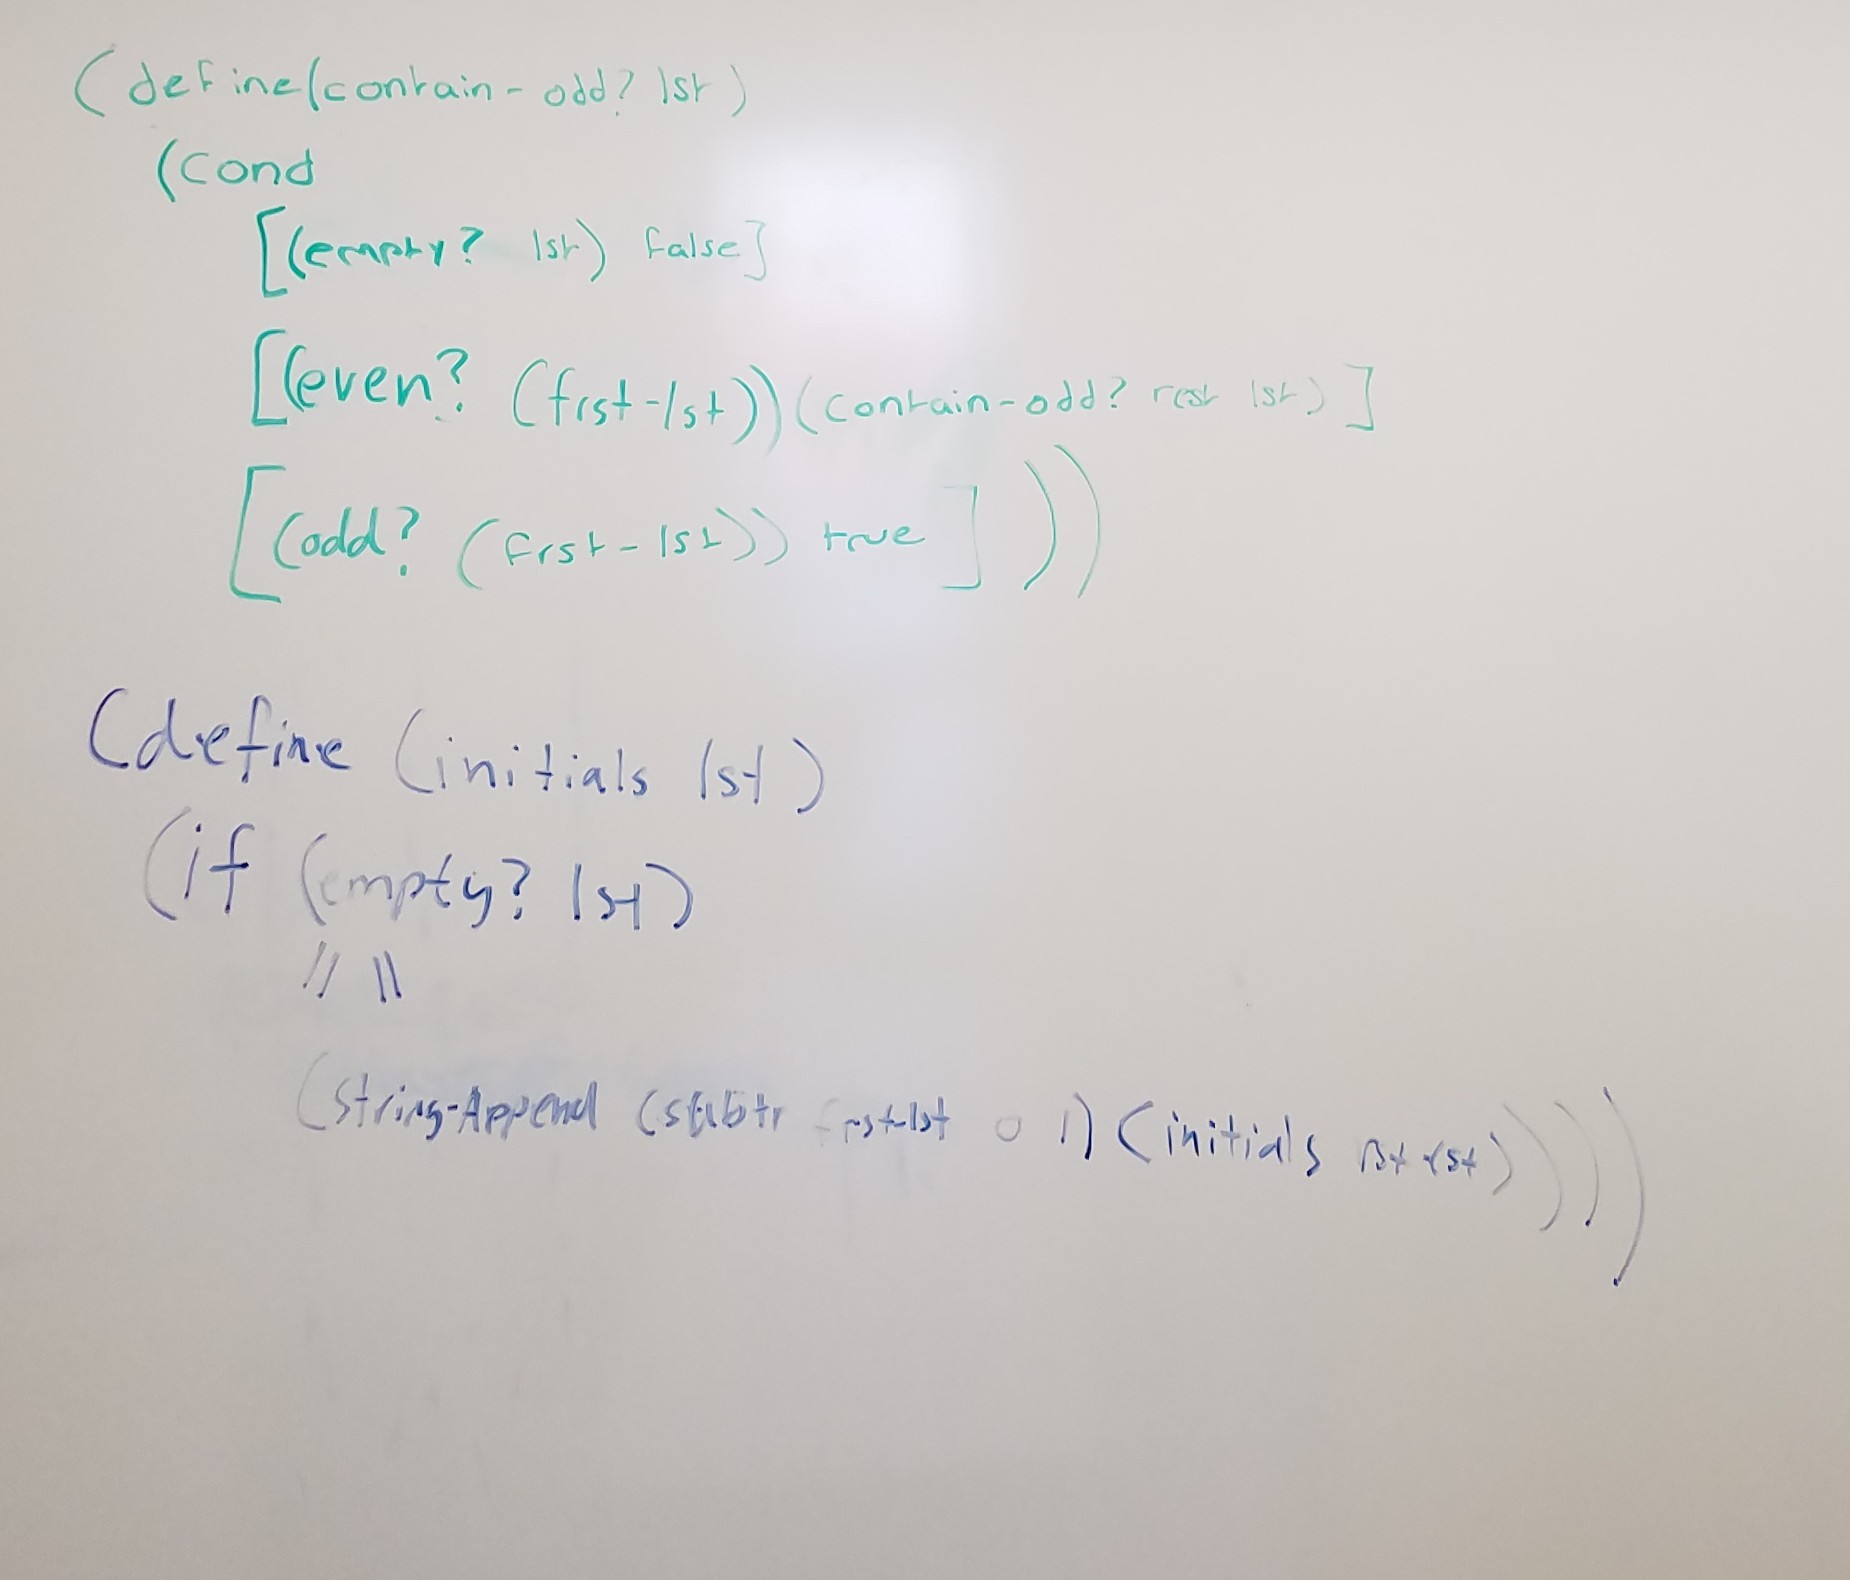 (define(contain-odd? lst)
(cond
[(empty? lst) false]
[(even? (frst-lst))(contain-odd? rest lst)]
[(odd? (frst-lst)) true]))
(define (initials lst)
(if (empty? lst)
" "
(string-Append (subtr frst-lst 0 1)(initials lst))))